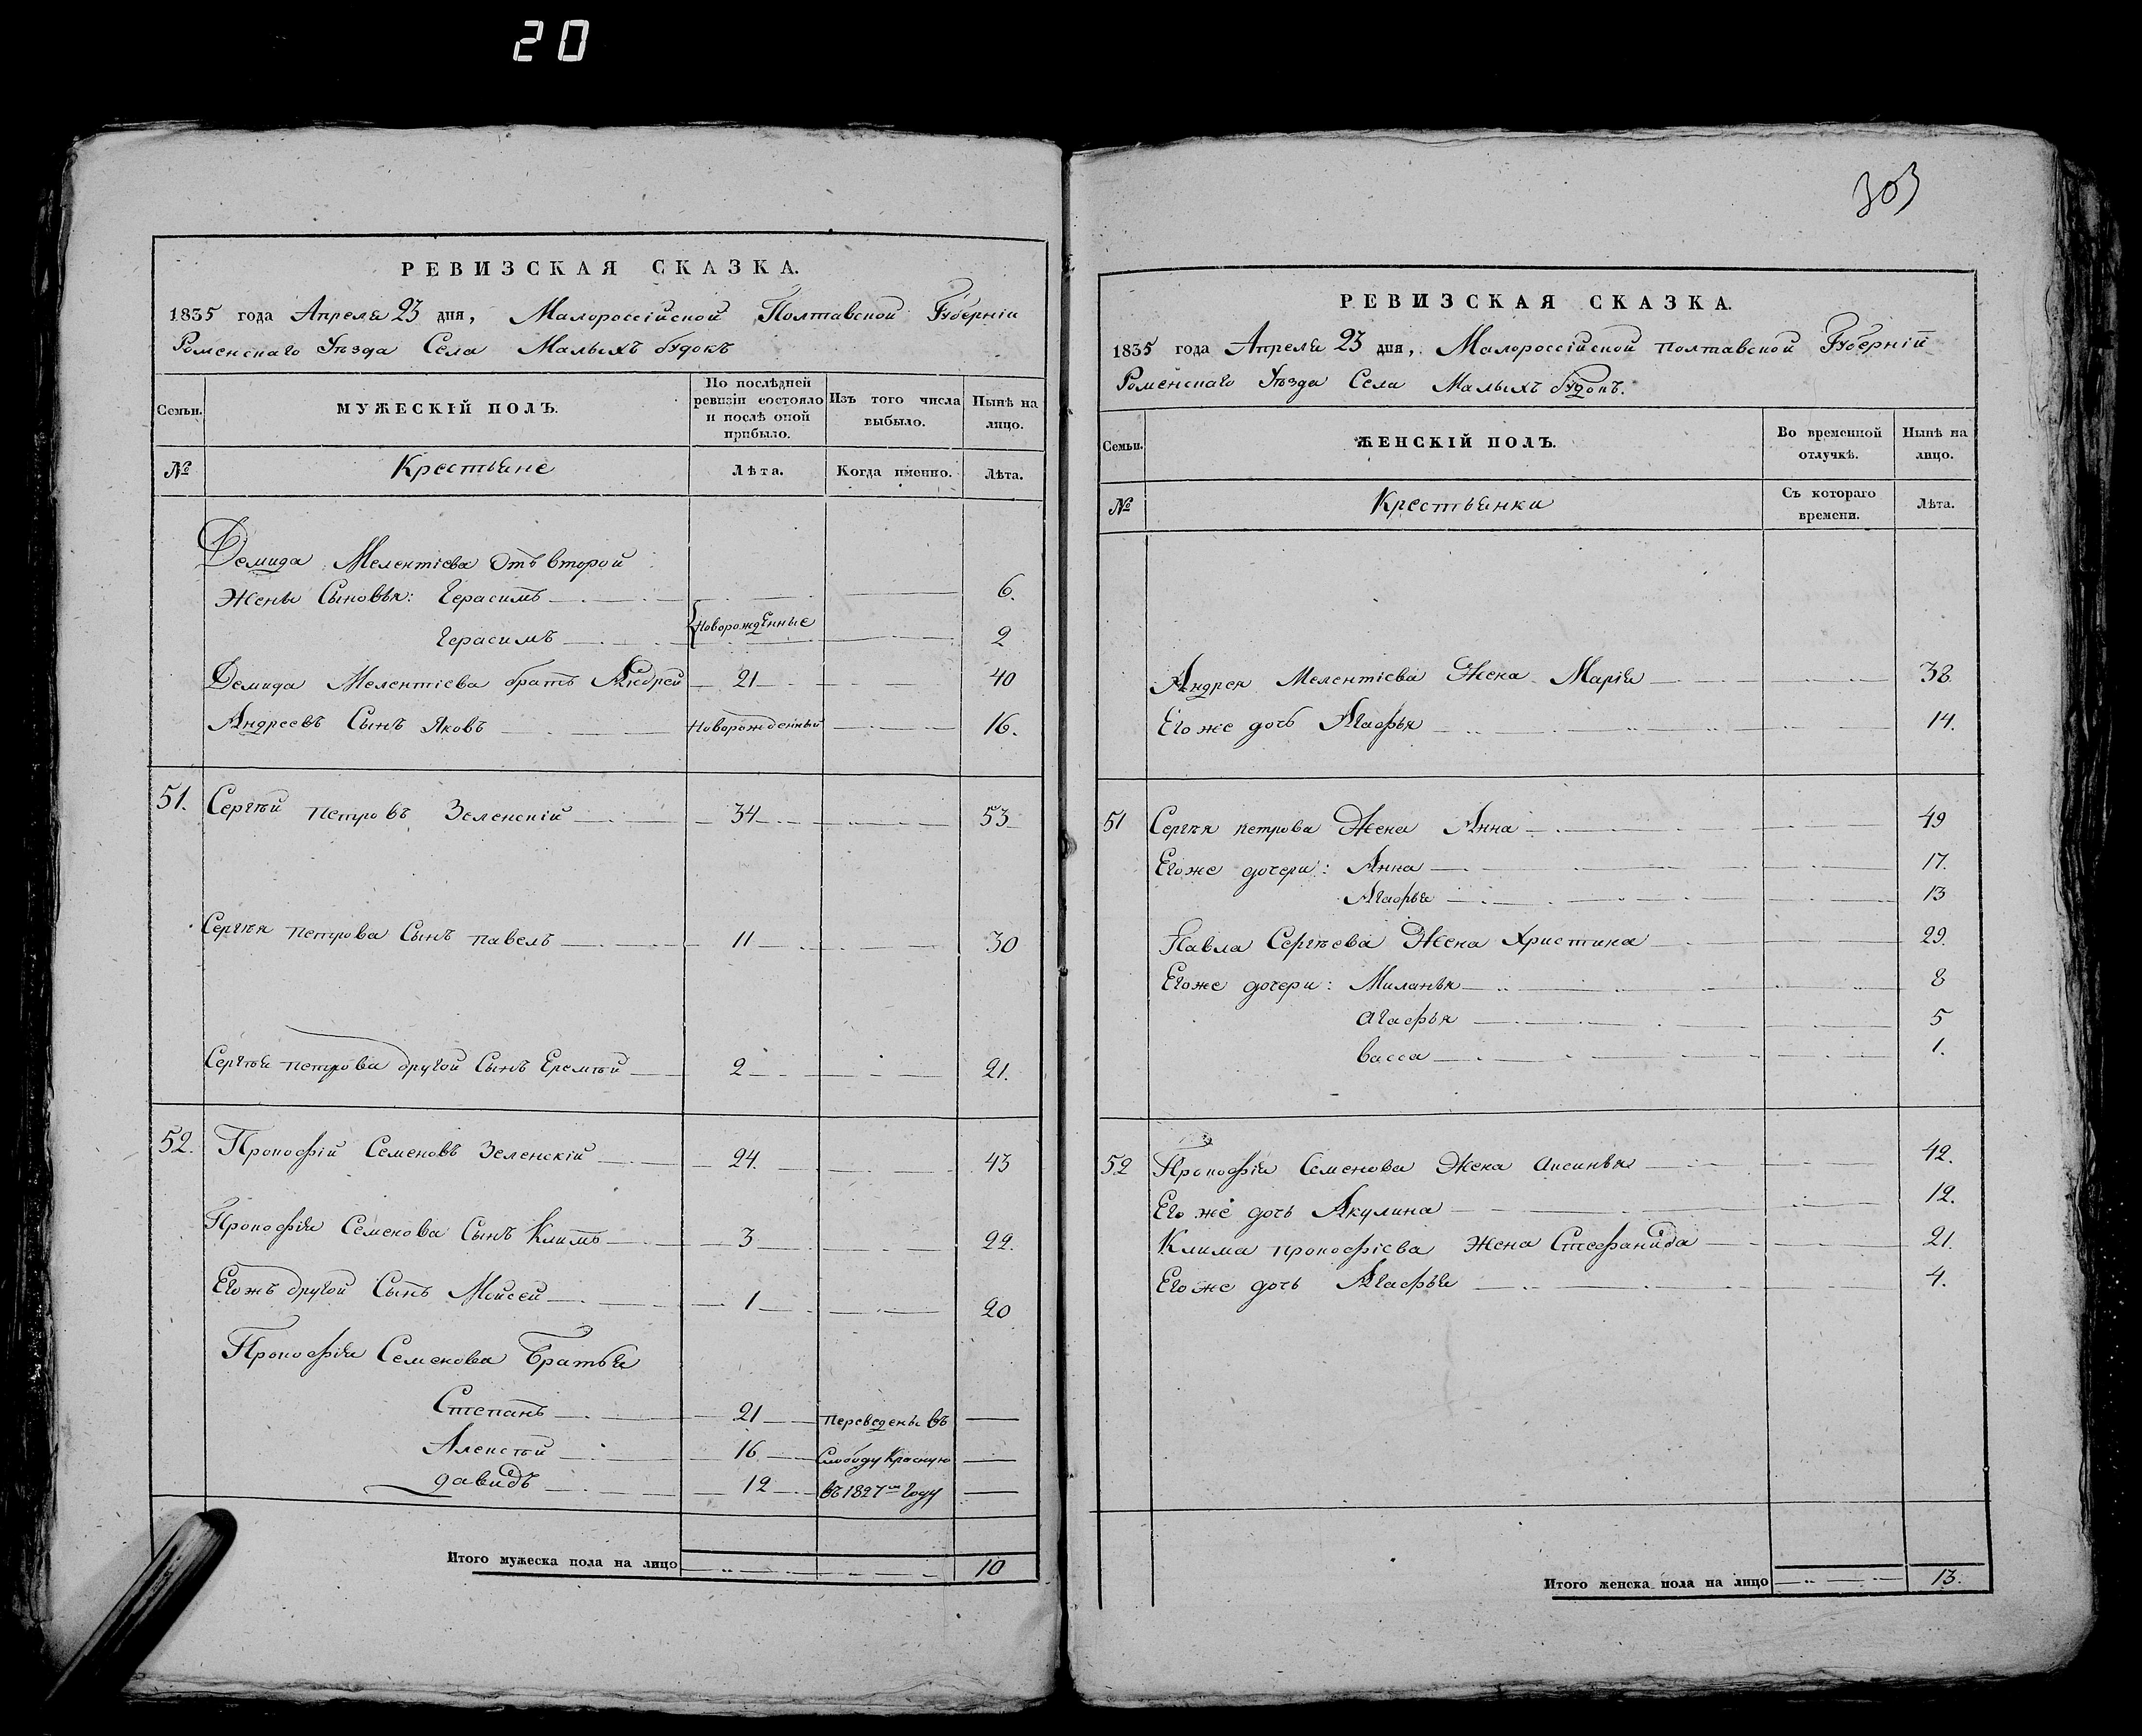 20
РЕВИЗСКАЯ СКАЗКА.
1835 года Апреля 23 дня, Малороссійской Полтавской Губерніи
Роменскаго Уѣзда Села Малыхъ Будокъ
Семьи.
МУЖЕСКІЙ ПОЛЪ.
По послѣдней ревизіи состояло и послѣ оной прибыло.
Изъ того числа выбыло.
Нынѣ на лицо.
№
Крестьяне
Лѣта.
Когда именно.
Лѣта.
Демида Мелентіева отъ второй
Жены Сыновья: Герасимъ 6.
Герасимъ {Новорожденные 2
Демида Мелентіева братъ Андрей 21 40
Андреевъ Сынъ Яковъ Новорожденный 16.
51. Сергѣй Петровъ Зеленскій 34 53
Сергѣя Петрова Сынъ Павелъ 11 30
Сергѣя Петрова другой Сынъ Еремѣй 2 21.
52. Прокофій Семеновъ Зеленскій 24. 43
Прокофія Семенова Сынъ Климъ 3 22.
Егожъ другой Сынъ Мойсей 1 20
Прокофія Семенова Братья
Степанъ 21 переведены въ
Алексѣй 16 Слободу Красную
Давидъ 12 въ 1827м году
Итого мужеска пола на лицо 10
303
РЕВИЗСКАЯ СКАЗКА.
1835 года Апреля 23 дня, Малороссійской Полтавской Губерніи
Роменскаго Уѣзда Села Малыхъ Будокъ.
Семьи.
ЖЕНСКІЙ ПОЛЪ.
Во временной отлучкѣ.
Нынѣ на лицо.
№
Крестьянки
Съ котораго времени.
Лѣта.
Андрея Мелентіева Жена Марія 38
Его же дочь Агафья 14.
51 Сергѣя Петрова Жена Анна 49
Егоже дочери: Анна 17.
Агафья 13
Павла Сергѣева Жена Христина 29.
Егоже дочери: Миланья 8
Агафья 5
Васса 1.
52 Прокофія Семенова Жена Аксинья 42.
Его же дочь Акулина 12.
Клима Прокофіева Жена Стефанида 21.
Егоже дочь Агафья 4.
Итого женска пола на лицо 13.